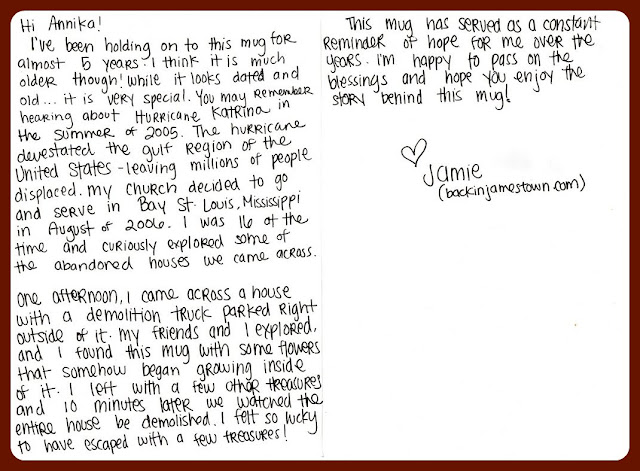 Hi Annika!
I've been holding on to this mug for
almost 5 years - I think it is much
older though! While it looks dated and
old... it is very special. You may remember
hearing about Hurricane Katrina in
the summer of 2005. The hurricane
devestated the gulf region of the
United States - leaving millions of people
displaced. My church decided to go
and serve in Bay St. Louis, Mississippi
in August of 2006. I was 16 at the
time and curiously explored some of
the abandoned houses we came across.
One afternoon, I came across a house
with a demolition truck parked right
outside of it. My friends and I explored,
and I found this mug with some flowers
that somehow began growing inside
of it. I left with a few other treasures
and 10 minutes later we watched the
entire house be demolished. I felt so lucky
to have escaped with a few treasures!
This mug has served as a constant
reminder of hope for me over the
years. I'm happy to pass on the
blessings and hope you enjoy the
story behind this mug!
♡ Jamie
(backinjamestown.com)